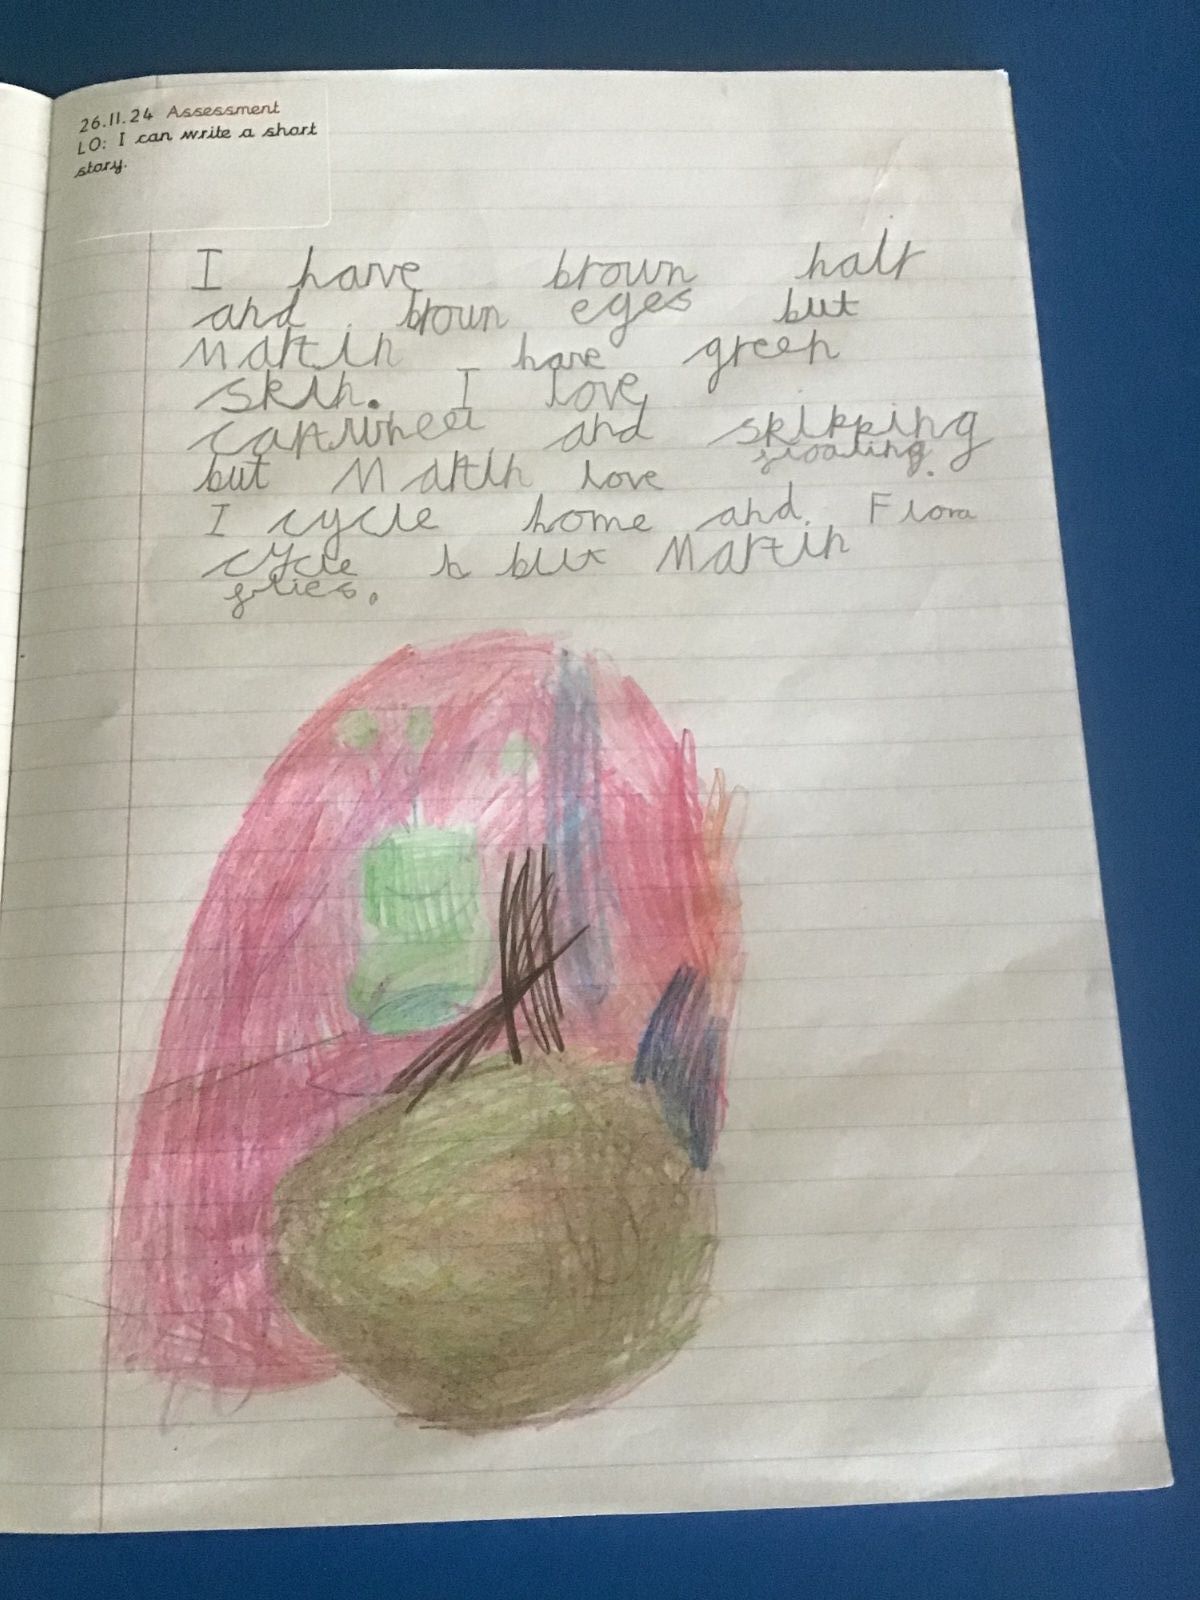 26.11.24 Assessment
LO: I can write a short
story.
I have brown hair
and brown eyes but
Martin have green
skin. I love
cartwheel and skipping
but Martin love floating.
I cycle home and Flora
cycle h but Martin
flies.